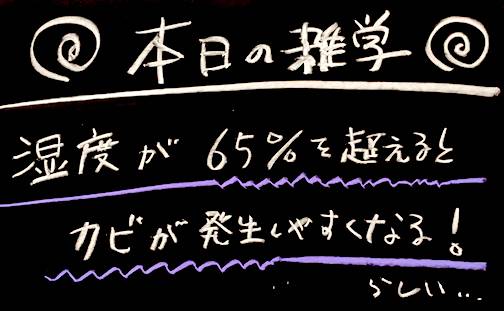 本日の雑学
湿度が65%を超えると
カビが発生しやすくなる!
らしい…